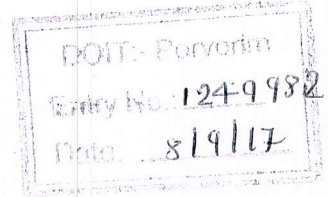 DOIT:- Porvorim
Entry No.: 1249982
Date: 8/9/17